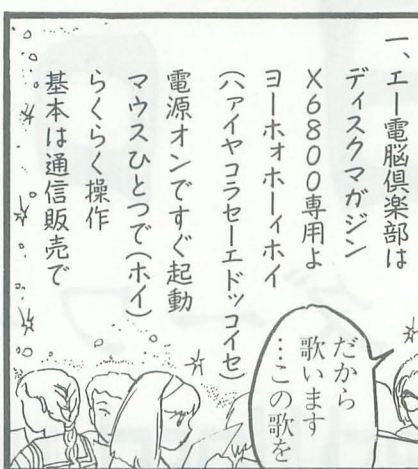 一、エー電脳倶楽部は
ディスクマガジン
X6800専用よ
ヨーホォホーイホイ
(ハァイヤコラセーエドッコイセ)
電源オンですぐ起動
マウスひとつで(ホイ)
らくらく操作
基本は通信販売で
だから
歌います
…この歌を